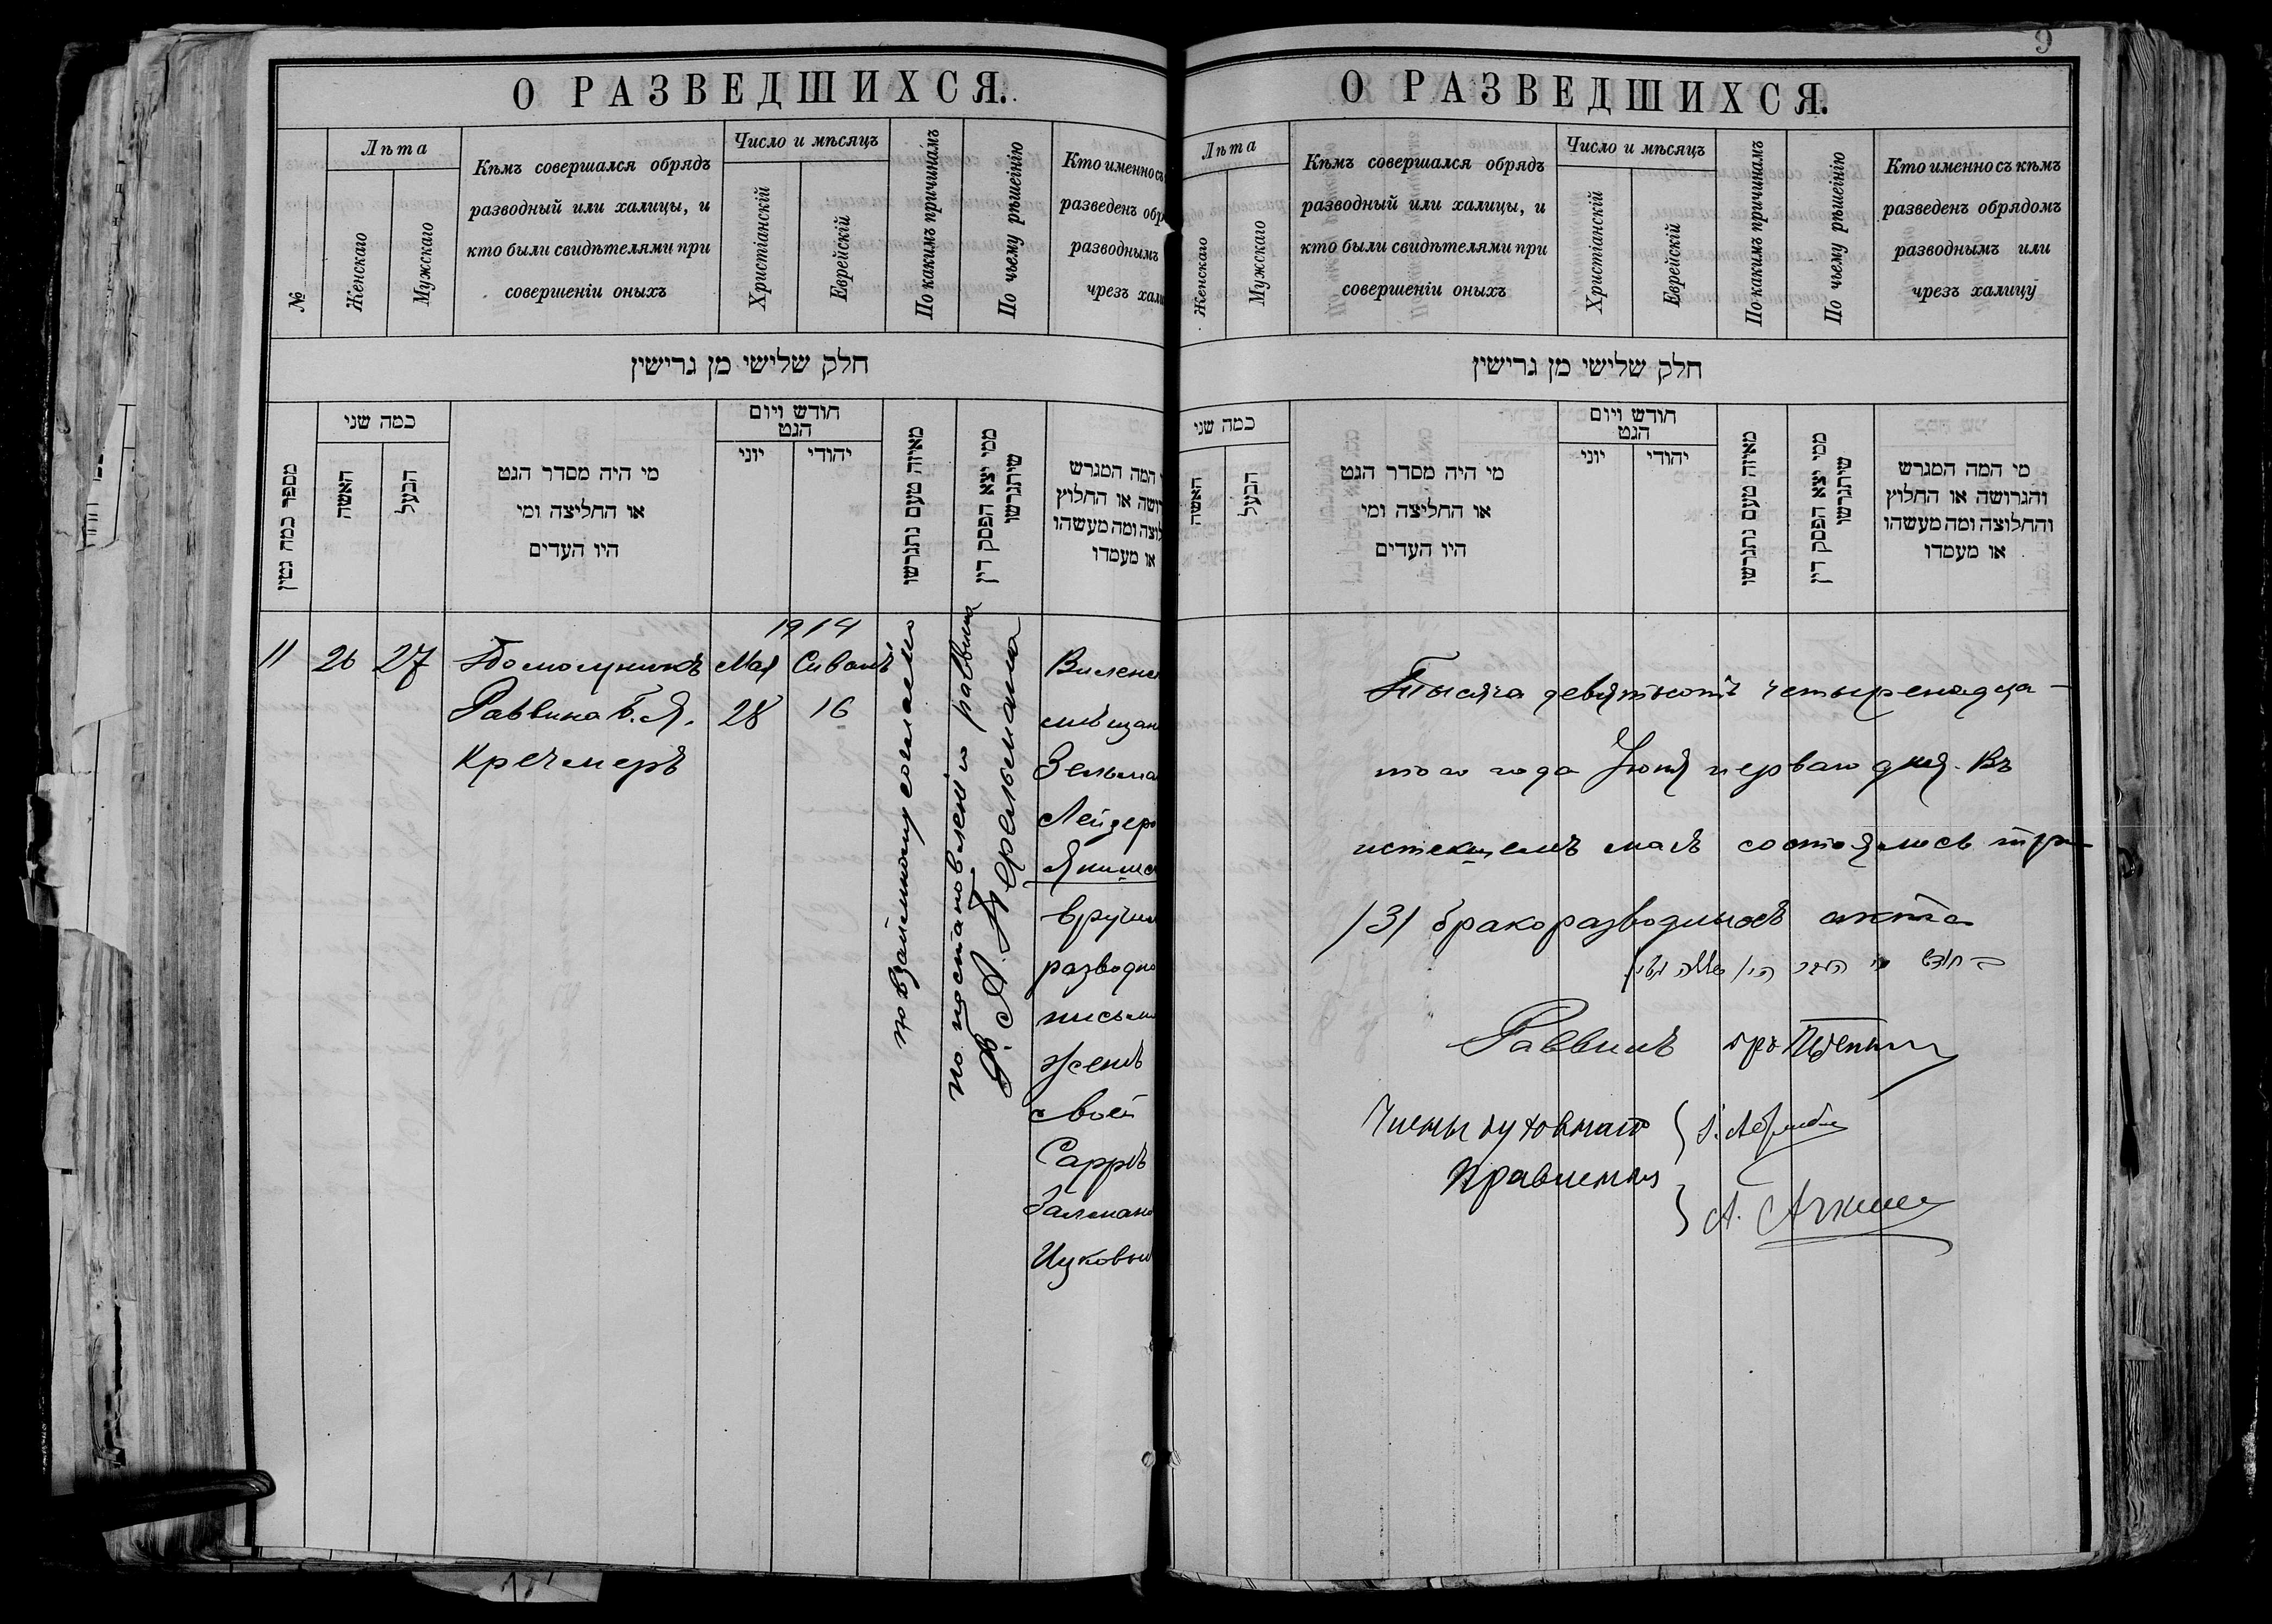 О РАЗВЕДШИХСЯ.
№
Лѣта
Женскаго
Мужскаго
Кѣмъ совершался обрядъ
разводный или халицы, и
кто были свидѣтелями при
совершеніи оныхъ
Число и мѣсяцъ
Христіанскій
Еврейскій
По какимъ причинамъ
По чьему рѣшенію
Кто именно съ
разведенъ обр
разводнымъ
чрезъ хали
חלק שלישי מן גרישין
מספר כמה גטין
כמה שני
האשה
הבעל
מי היה מסדר הגט
או החליצה ומי
היו העדים
חודש ויום
הגט
יוני
יהודי
מאיזה טעם נתגרשו
ממי יצא הפסק דין
שיתגרשו
המה המגרש
רושה או החלוץ
לוצה ומה מעשהו
או מעמדו
1914
11 26 27 Помощникъ Мая Сиванъ
Раввина Б. Я. 28 16
Кречмеръ
по взаимному согласію
по постановленію раввина
Перельмана
Виленс
мѣщан
Зельма
Лейзеро
вручил
разводно
письмо
женѣ
своей
Саррѣ
Залмано
Ицковы
9
О РАЗВЕДШИХСЯ.
Лѣта
Женскаго
Мужскаго
Кѣмъ совершался обрядъ
разводный или халицы, и
кто были свидѣтелями при
совершеніи оныхъ
Число и мѣсяцъ
Христіанскій
Еврейскій
По какимъ причинамъ
По чьему рѣшенію
Кто именно съ кѣмъ
разведенъ обрядомъ
разводнымъ или
чрезъ халицу
חלק שלישי מן גרישין
כמה שני
האשה
הבעל
מי היה מסדר הגט
או החליצה ומי
היו העדים
חודש ויום
הגט
יוני
יהודי
מאיזה טעם נתגרשו
ממי יצא הפסק דין
שיתגרשו
מי המה המגרש
והגרושה או החלוץ
והחלוצה ומה מעשהו
או מעמדו
Тысяча девятьсотъ четыренадца-
таго года Іюня перваго дня. Въ
истекшемъ маѣ состоялись три
/3/ бракоразводныхъ акта
Раввинъ
Члены духовнаго
Правленія
А.